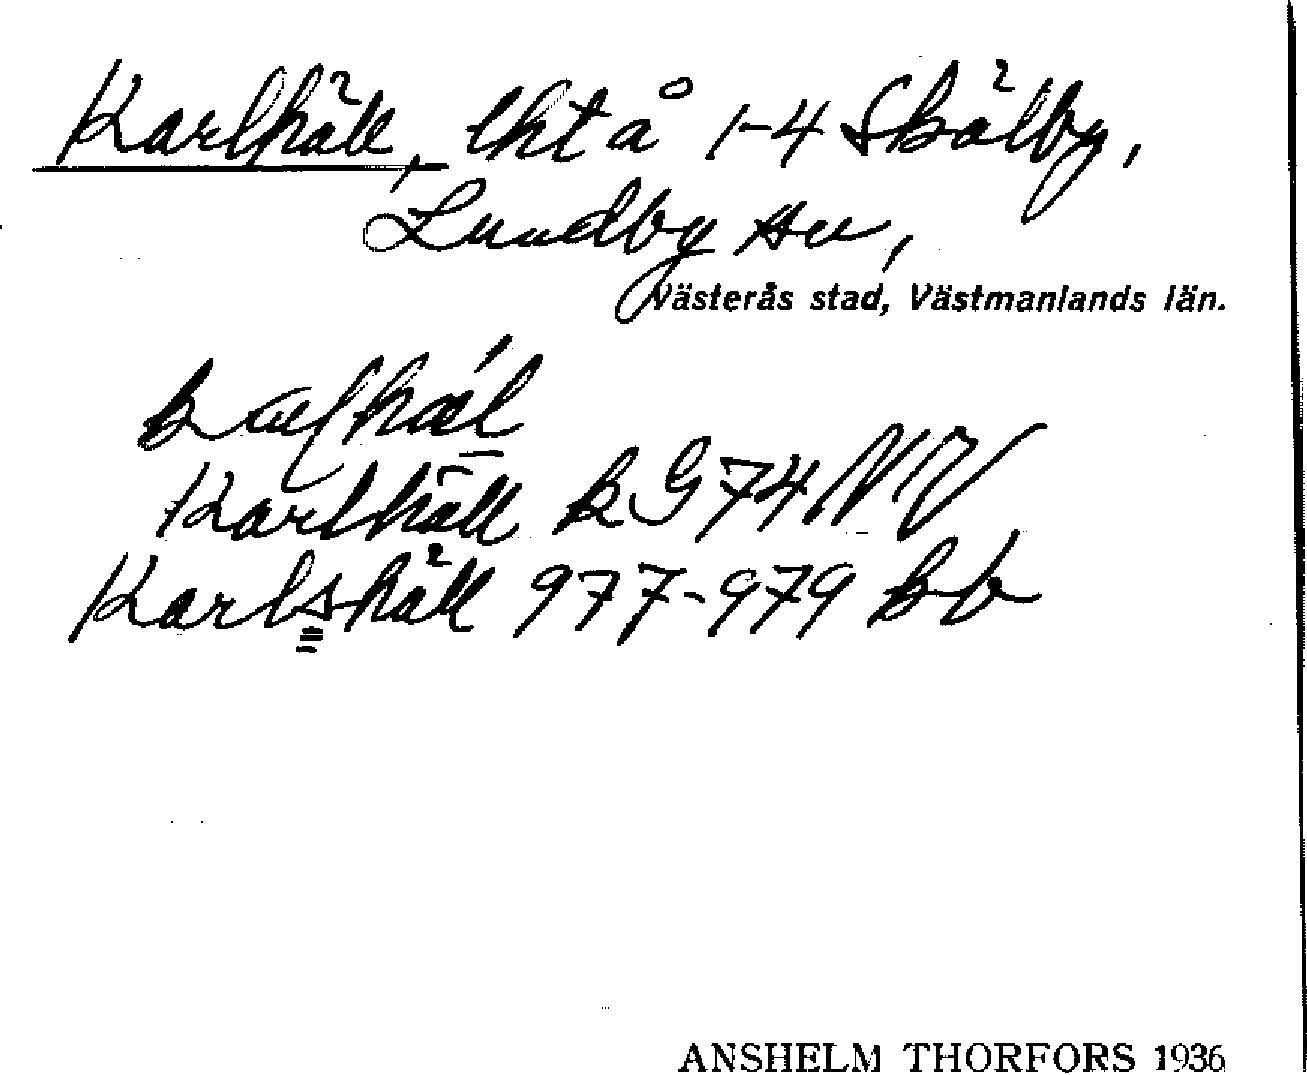 Karlhäll, lht å 1-4 Skälby,
Lundby sn,
Västerås stad, Västmanlands län.
Karlhäll k G 74 NV
Karlshäll 977-979 Bb
ANSHELM THORFORS 1936